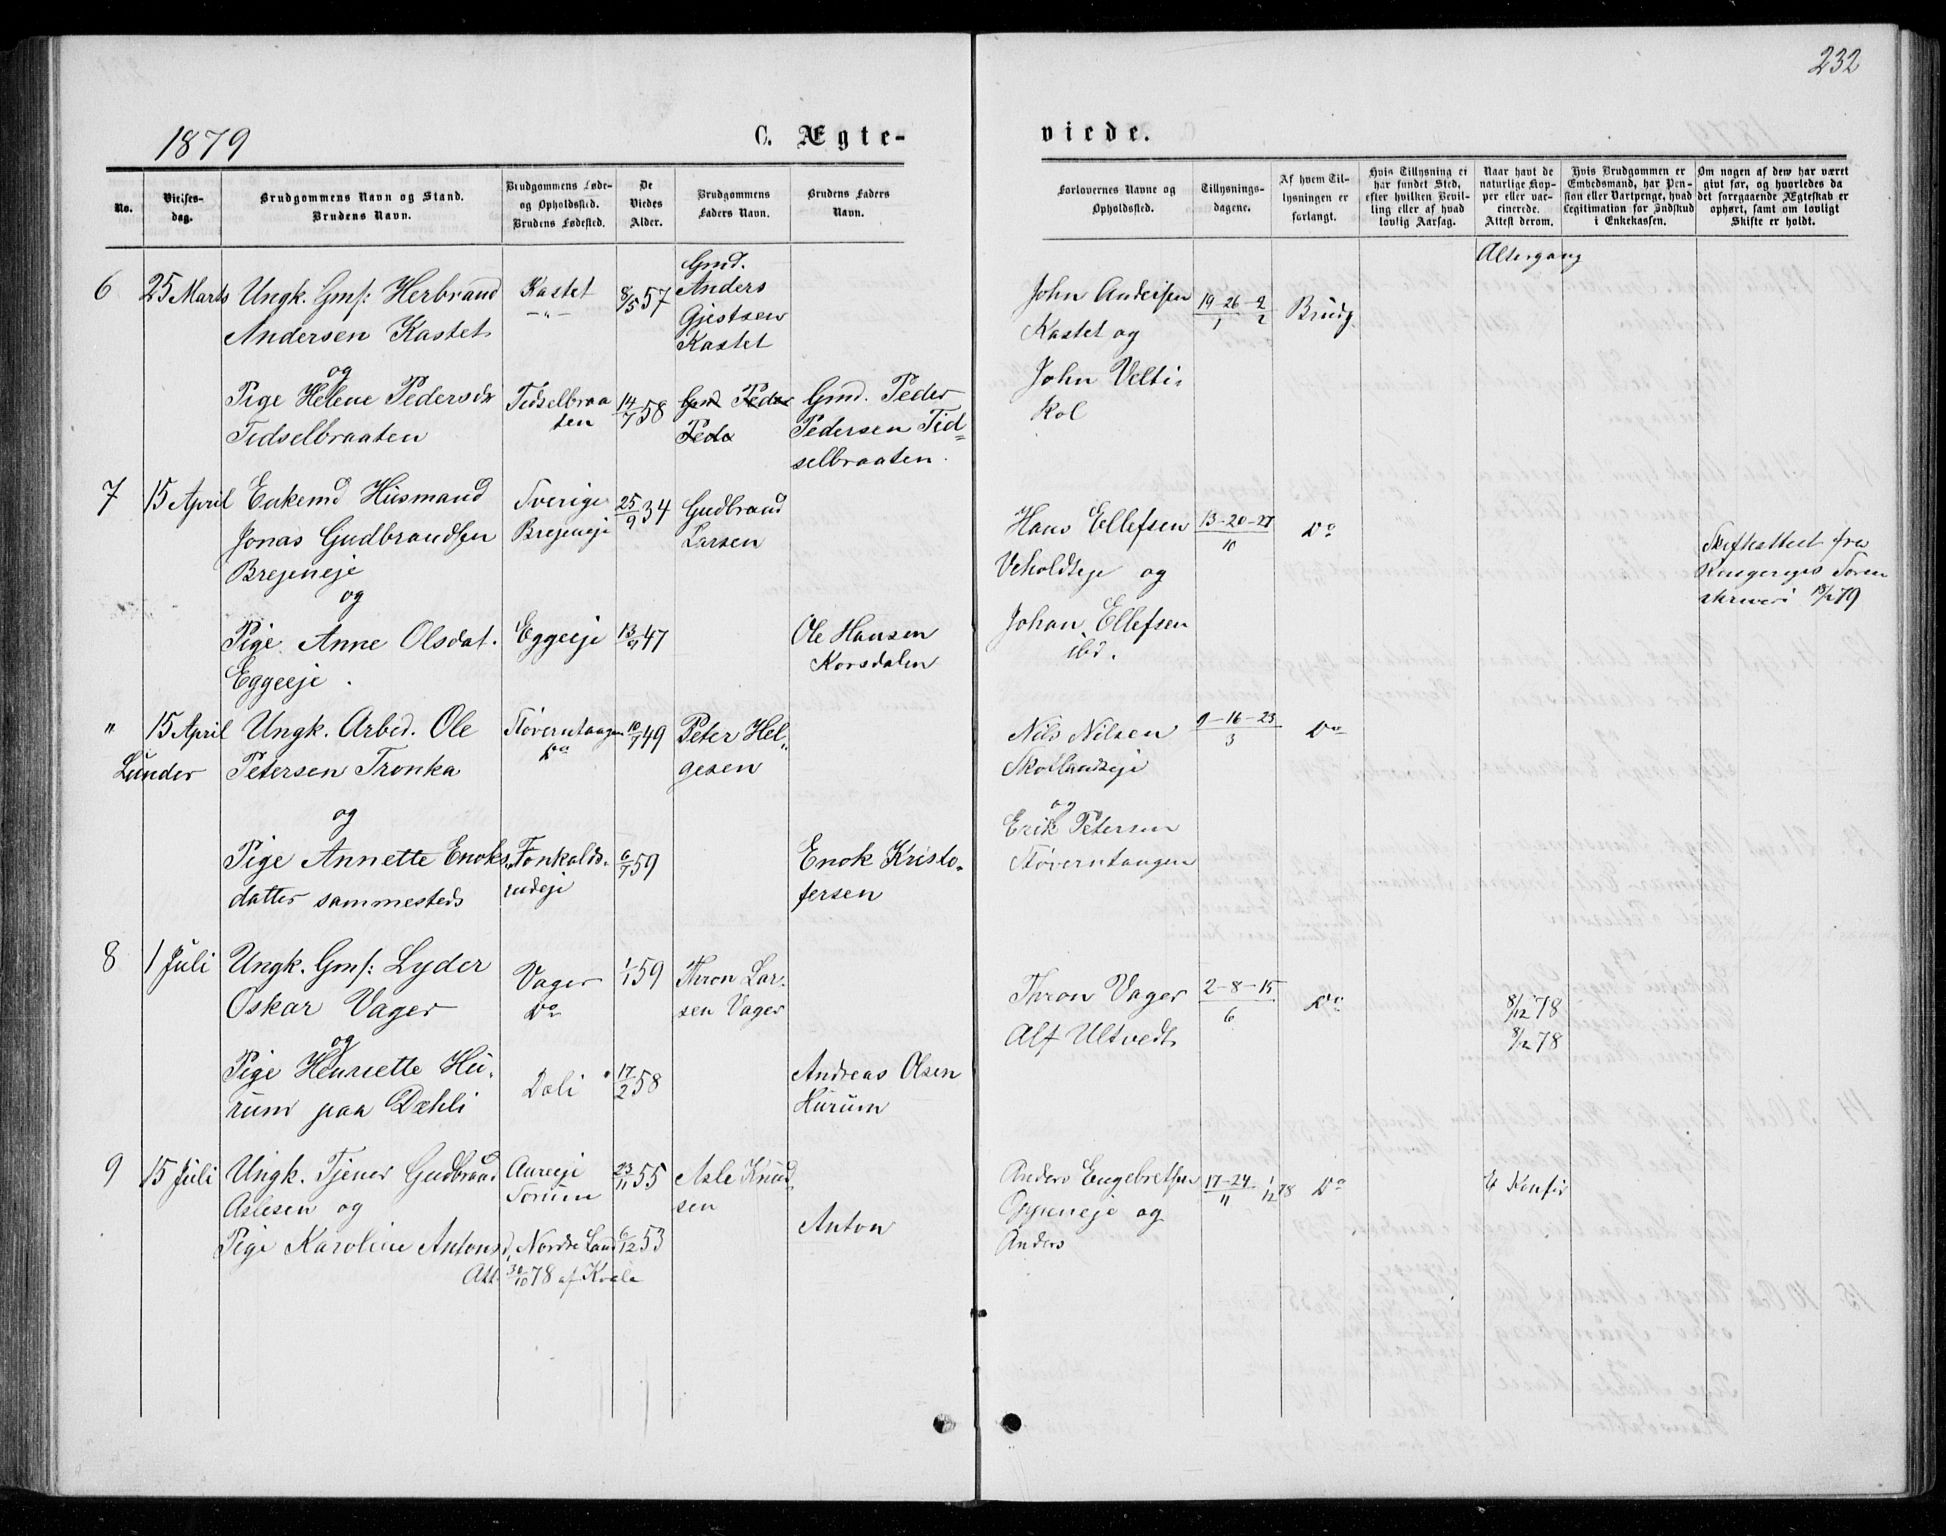 232
1879
C. Ægte-
viede.
No.
Vielses-
dag.
Brudgommens Navn og Stand.
Brudens Navn.
Brudgommens Føde-
og Opholdssted.
Brudens Fødested.
De
Viedes
Alder.
Brudgommens
Faders Navn.
Brudens Faders
Navn.
Forlovernes Navne og
Opholdssted.
Tillysnings-
dagene.
Af hvem Til-
lysningen er
forlangt.
Hvis Tillysning ei
har fundet Sted,
efter hvilken Bevil-
ling eller af hvad
lovlig Aarsag.
Naar havt de
naturlige Kop-
per eller vac-
cinerede.
Attest derom.
Hvis Brudgommen er
Embedsmand, har Pen-
sion eller Vartpenge, hvad
Legitimation for Indskud
i Enkekassen.
Om nogen af dem har været
gift før, og hvorledes da
det foregaaende Ægteskab er
ophørt, samt om lovligt
Skifte er holdt.
Altergang
6
25 Marts
Ungk. Gmf: Herbrand
Andersen Kastet
og
Pige Helene Pedersdr
Tidselbraaten
Kastet
-"-
Tidselbraa
ten
8/5 57
14/7 58
Gmd.
Anders
Gjestsen
Kastet
Gmd Peder
Peder
Gmd. Peder
Pedersen Tid=
selbraaten.
John Andersen
Kastet og
John Velti-
kol
19-26/1 - 2/2
Brudg.
7
15 April
Enkemd Husmand
Jonas Gudbrandsen
Brejeneje
og
Pige Anne Olsdat.
Eggeeje.
Sverige
Brejeneje
Eggeeje
25/9 34
13/9 47
Gudbrand
Larsen
Ole Hansen
Korsdalen
Hans Ellefsen
Veholdseje og
Johan Ellefsen
ibd.
13-20-27
10
Do
Skifteattest fra
Ringeriges Soren
skriveri 79
"
15 April
Lunder
Ungk. Arbed. Ole
Petersen Tronka
og
Pige Annette Enoks
datter sammesteds
Støverntangen
Do
rudeje
10/7 49
6/7 59
Peter Hel-
gesen
Enok Kristo-
fersen
Nils Nilsen
Skollandseje
og
Erik Petersen
Støverntangen
9-16-23
3
Do
8
1 Juli
Ungk. Gmf: Lyder
Oskar Vager
og
Pige Henriette Hu-
rum paa Dæhli
Vager
Do
Dæli
1/1 59
17/2 58
Thron Lar-
sen Vager
Andreas Olsen
Hurum
Thron Vager
Alf Ultvedt
2-8-15
6
Do
8/12 78
8/12 78
9
15 Juli
Ungk. Tjener Gudbrand
Aslesen og
Pige Karoline Antonsd,
Aureeje
Sorum
Nordre Land
Att. 30/10 78 af Kvale
23/11 55
6/12 53
Asle Knud-
sen
Anton
Anders Engebretsen
Oppeneje og
Anders
17-24/11 - 1/12 78
Do
Konfir